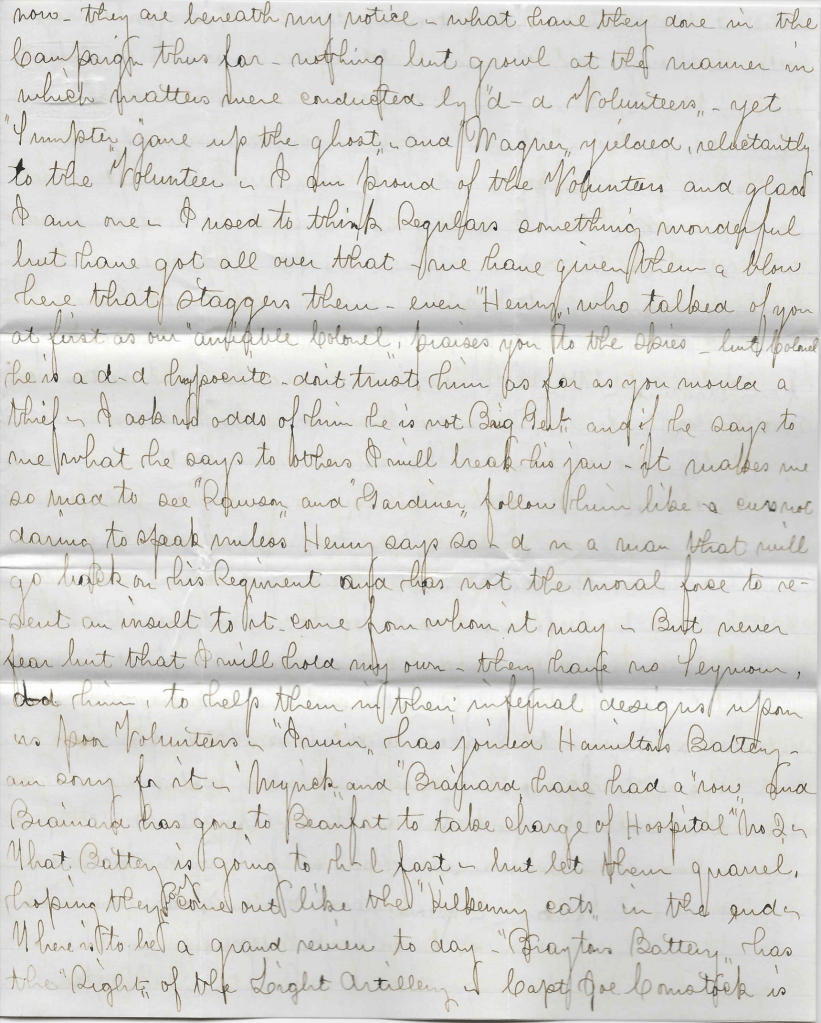 now - they are beneath my notice - what have they done in the
Campaign thus far - nothing but growl at the manner in
which matters were conducted by "d-d Volunteers" - yet
"Sumpter" "gave up the ghost" - and "Wagner" yielded, reluctantly
to the "Volunteer" - I am proud of the "Volunteers and glad
I am one - I used to think Regulars something wonderful
but have got all over that - we have given them a blow
here that staggers them - even "Henry", who talked of you
at first as our "amiable Colonel", praises you to the skies - but Colonel
he is a d-d hypocrite - don't trust him as far as you would a
thief - I ask no odds of him he is not Brig Genl and if he says to
me what he says to others I will break his jaw - it makes me
so mad to see "Rawson" and "Gardiner" follow him like a cur not
daring to speak unless Henry says so - d--n a man that will
go back on his Regiment and has not the moral force to re-
-sent an insult to it - come from whom it may - But never
fear but that I will hold my own - they have no Seymour,
d-d him, to help them in their infernal designs upon
us poor Volunteers - "Irwin" has joined Hamilton's Battery -
am sorry for it - "Myrick" and "Brainard" have had a "row" and
Brainard has gone to Beaufort to take charge of Hospital "No 2 -
That Battery is going to h-l fast - but let them quarrel,
hoping they come out like the "Kilkenny cats" in the end -
There is to be a grand review to day - "Brayton's Battery" has
the "Right" of the Light Artillery - Capt Joe Comstock is